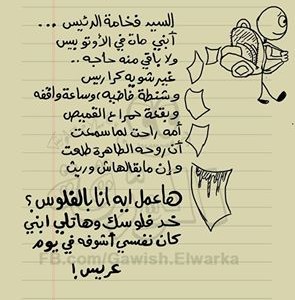 السيد فخامة الرئيس ...
أبني مات في الأوتوبيس
ولا باقي منه حاجه ..
غير شوية كراريس
وشنطة فاضيه وساعة واقفه
وبقعة حمرا ع القميص
أمه راحت لما سمعت
أن روحه الطاهرة طلعت
وإن ما بقالهاش وريث
هاعمل ايه انا بالفلوس؟
خد فلوسك وهاتلي ابني
كان نفسي أشوفه في يوم
عريس!
FB.com/Gawish.Elwarka